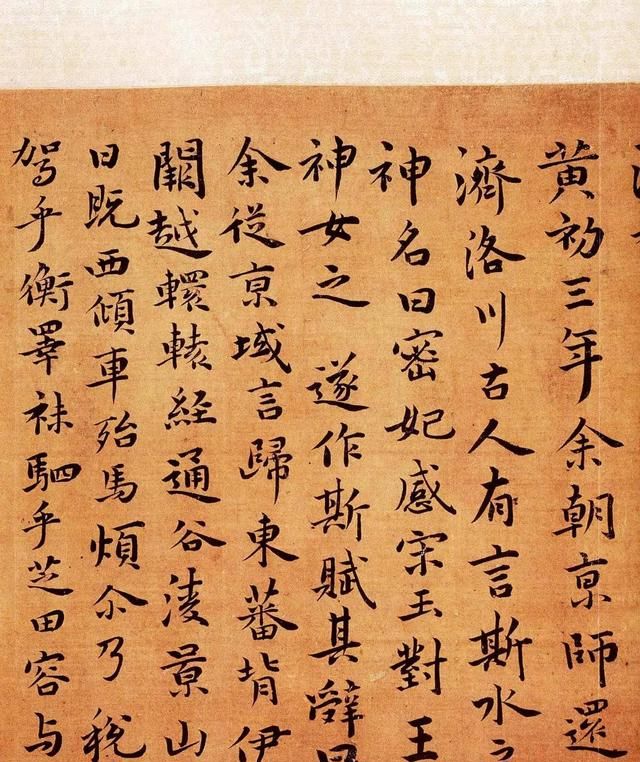 黄初三年余朝京師還
濟洛川古人有言斯水之
神名曰密妃感宋玉對王
神女之遂作斯賦其辝曰
余從京域言歸東蕃背伊
闕越轘轅經通谷淩景山
日既西傾車殆馬煩尒乃稅
駕乎衡睪秣駟乎芝田容与